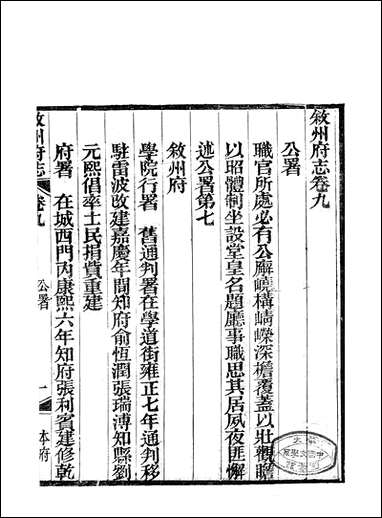 敘州府志卷九
公署
職官所處必有公廨嶢構崝嶸深檐覆蓋以壯觀瞻
以昭體制坐設堂皇名題廳事職思其居夙夜匪懈
述公署第七
敘州府
學院行署 舊通判署在學道街雍正七年通判移
駐雷波改建嘉慶年間知府俞恒潤張瑞溥知縣劉
元熙倡率士民捐貲重建
府署 在城西門內康熙六年知府張利賓建修乾
敘州府志
卷九
公署
一
本府